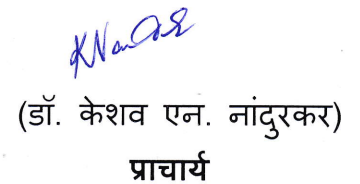 (डॉ. केशव एन. नांदुरकर)
प्राचार्य